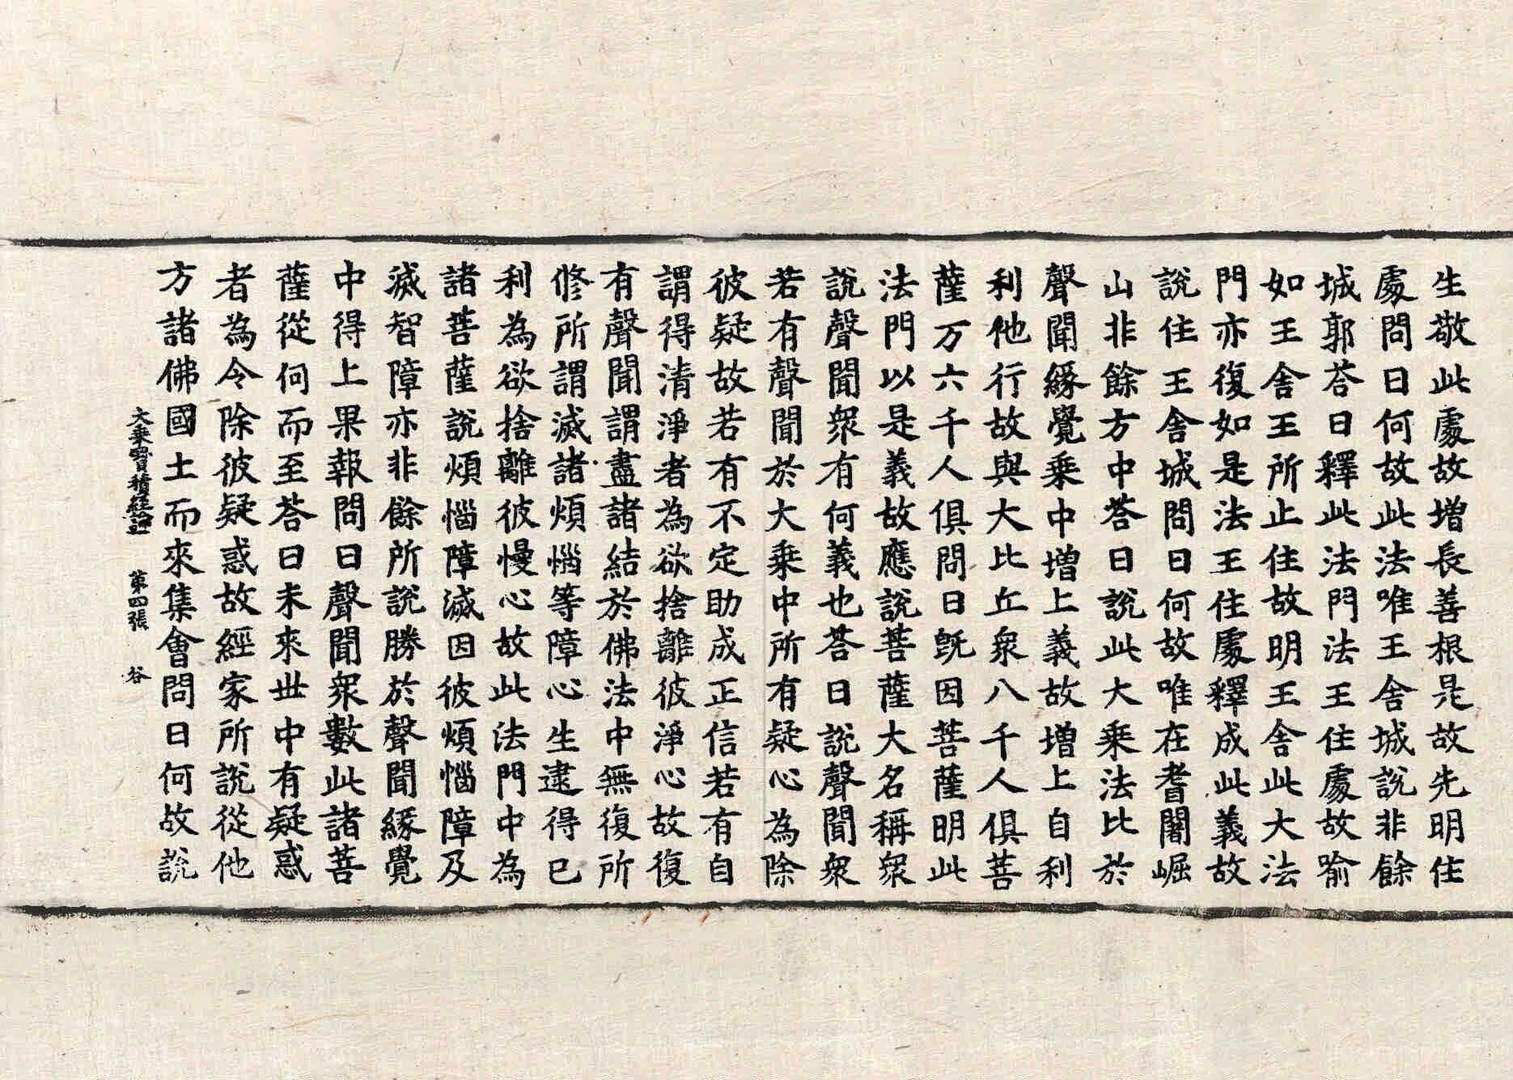 生敬此處故增長善根是故先明住
處問曰何故此法唯王舍城說非餘
城郭荅曰釋此法門法王住處故喻
如王舍王所止住故明王舍此大法
門亦復如是法王住處釋成此義故
說住王舍城問曰何故唯在耆闍崛
山非餘方中荅曰說此大乘法比於
聲聞緣覺乘中增上義故增上自利
利他行故與大比丘衆八千人俱菩
薩万六千人俱問曰旣因菩薩明此
法門以是義故應說菩薩大名稱衆
說聲聞衆有何義也荅曰說聲聞衆
若有聲聞於大乘中所有疑心為除
彼疑故若有不定助成正信若有自
謂得清淨者為欲捨離彼淨心故復
有聲聞謂盡諸結於佛法中無復所
修所謂滅諸煩惱等障心生逮得已
利為欲捨離彼慢心故此法門中為
諸菩薩說煩惱障滅因彼煩惱障及
滅智障亦非餘所說勝於聲聞緣覺
中得上果報問曰聲聞衆數此諸菩
薩從何而至荅曰未來世中有疑惑
者為令除彼疑惑故經家所說從他
方諸佛國土而來集會問曰何故說
大乘寶積經論 第四張 谷